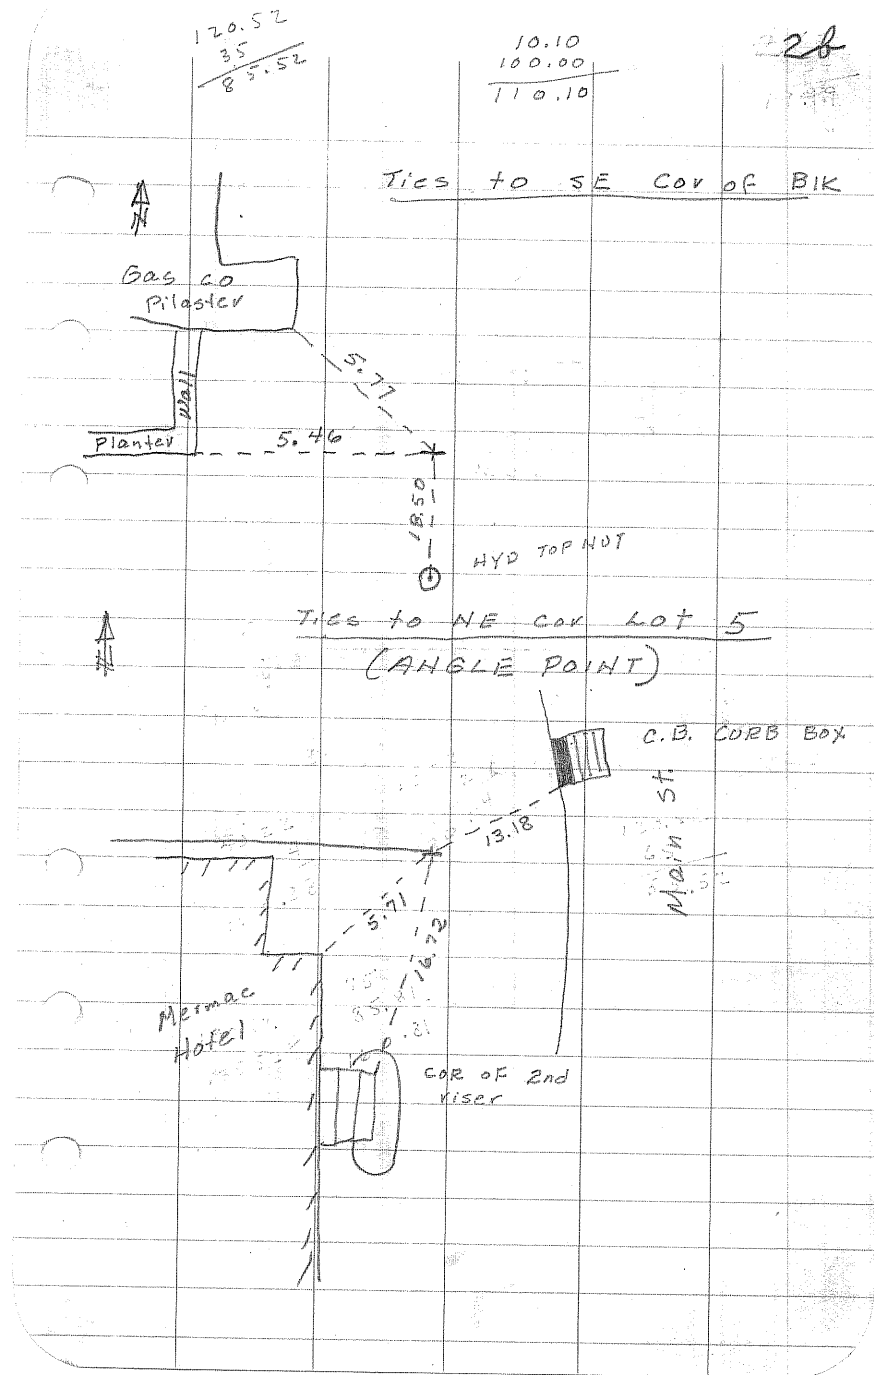 120.52
35
85.52
10.10
100.00
110.10
2b
Ties to SE Cor of Blk
N
Gas co
Pilaster
5.77
Wall
Planter
5.46
18.50
HYD TOP NUT
Ties to NE Cor Lot 5
(ANGLE POINT)
N
C.B. CURB BOX
Main St.
13.18
5.71
16.72
Mermac
Hotel
COR OF 2nd
riser